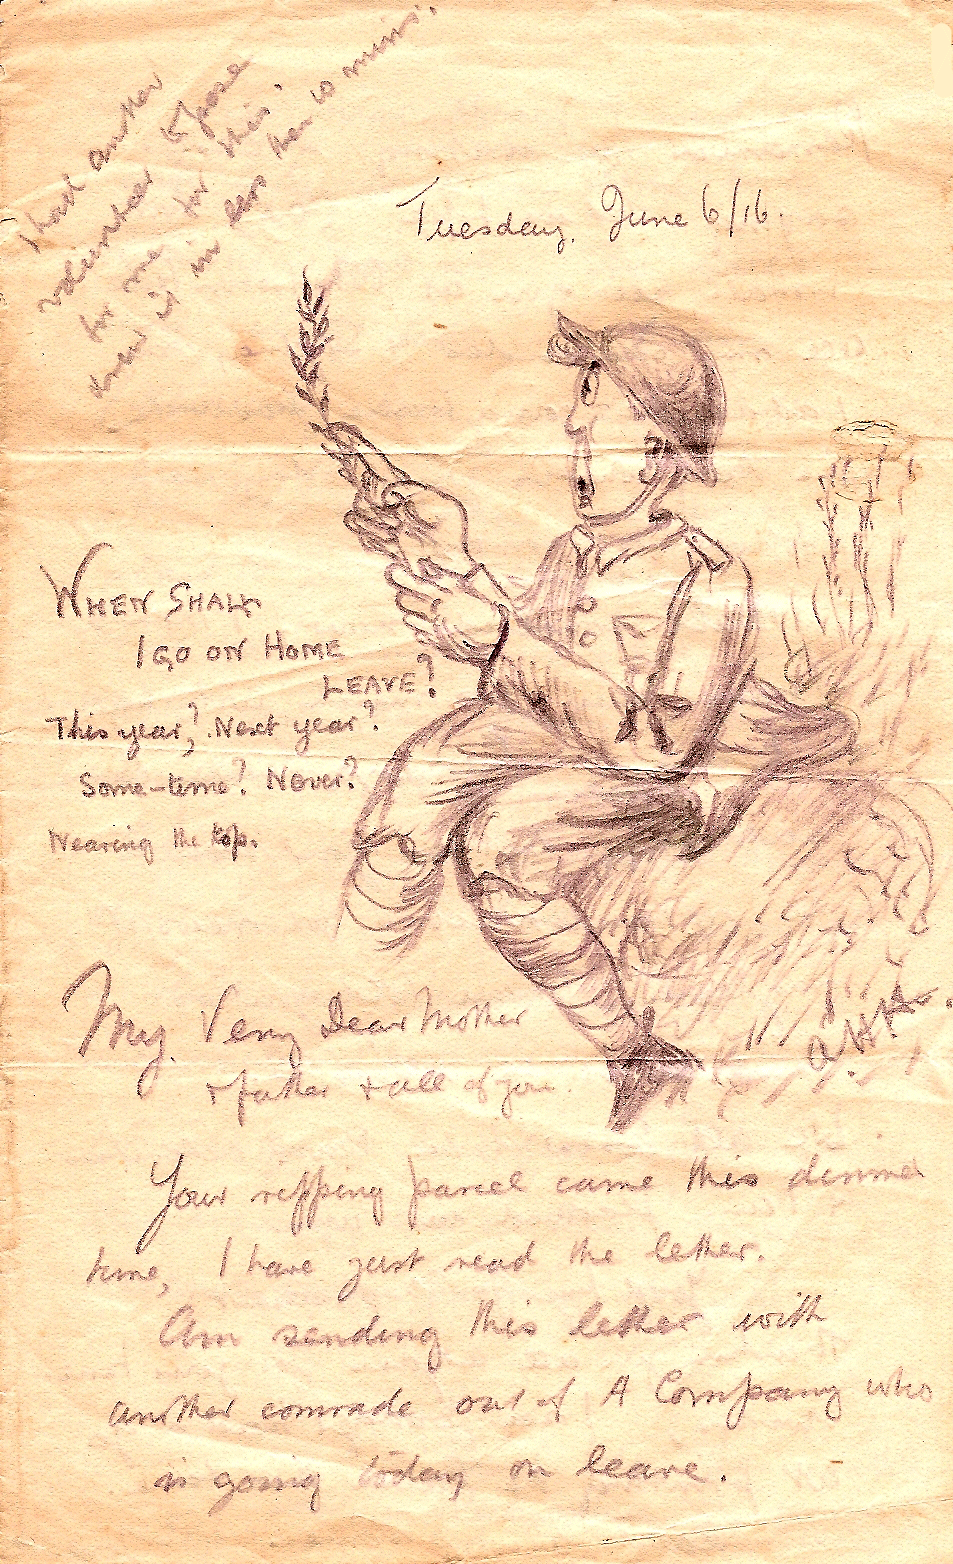 I had another
volunteer to pose
for me for this.
drew it in less than 10 mins.
Tuesday, June 6/16.
WHEN SHALL
I GO ON HOME
LEAVE?
This year? Next year?
Some-time? Never?
Nearing the top.
My Very Dear Mother
+ father + all of you.
Your ripping parcel came this dinner
time, I have just read the letter.
Am sending this letter with
another comrade out of A Company who
is going today on leave.